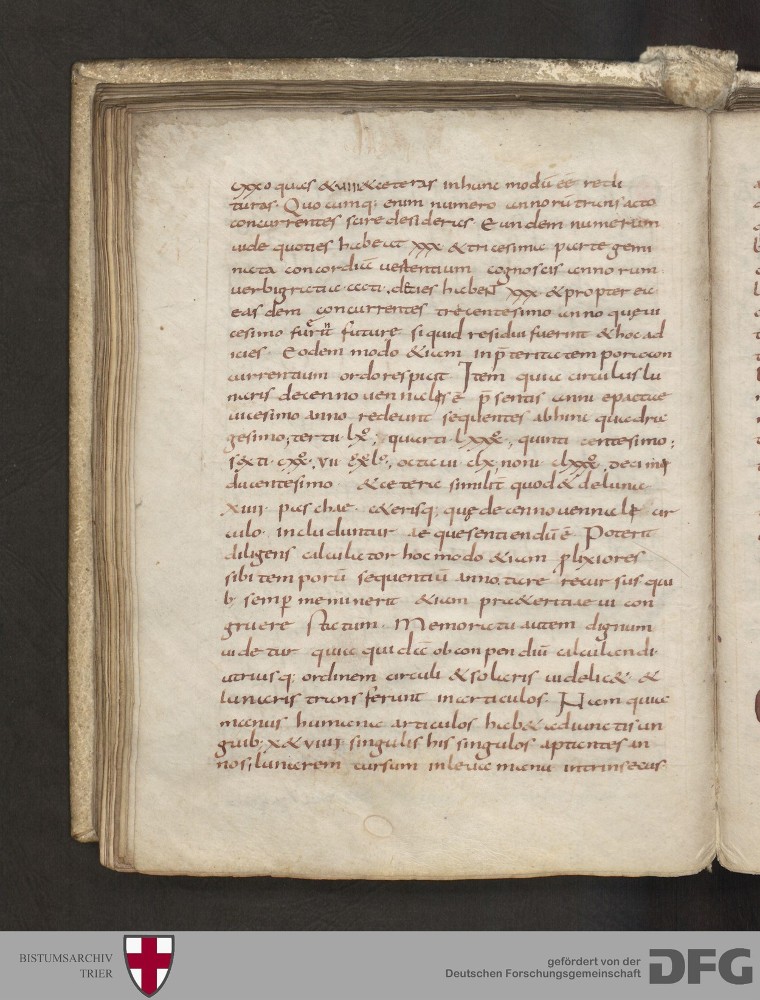 quies & viiii & ceteras in hunc modū eē redi
turas. Quocumq; enim numero annorū transacto
concurrentes scire desideras. Eundem numerum
uide quoties habeat xxx & tricesima parte gemi
nata concordiā uertentium cognoscis annorum
uerbi gratia decies habent xxx & propter ea
easdem concurrentes trecentesimo anno quę ui
cesimo future si quid residui fuerint & hoc ad
icies. Eodem modo &iam in p̄teritū tempori con
currentium ordo respicit Item quia circulus lu
naris decennouennalis ē p̄sentis anni epactae
uicesimo anno redeunt sequentes abhinc quadra
gesimo; tertii lxº; quarti lxxxº, quinti centesimo;
sexti cxxº. vii cxlº, octaui clx, noni clxxxº. decimi
ducentesimo. & cetera similit quod & de luna
xiiii paschae. c&erisq; quę decennouennali cir
culo includuntur aeque sentiendū ē Poterit
diligens calculator hoc modo &iam plixiores
sibi temporū sequentiū annotare recursus qui
b; semp meminerit &iam praeteritae ui con
gruere statum. Memoratu autem dignum
uidetur quia quidā ob conpendiū calculandi
utriusq; ordinem circuli & solaris uidelic& &
lunaris transferunt in articulos. Nam quia
manus humana articulos hab& adiunctis un
guib; x & viiii singulis his singulos aptantes an
nos; lunarem cursum in leua manu intrinsecus.
BISTUMSARCHIV
TRIER
gefördert von der
Deutschen Forschungsgemeinschaft
DFG